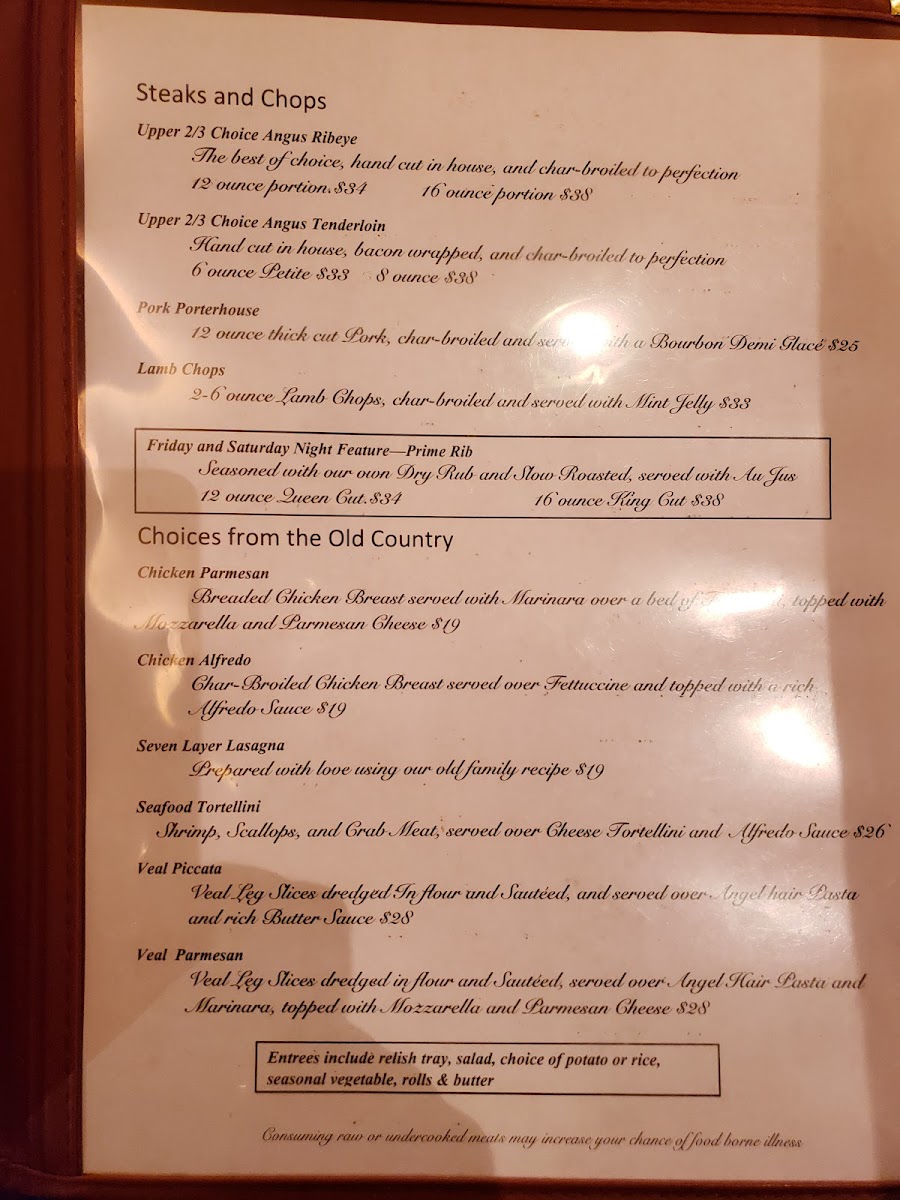 Steaks and Chops
Upper 2/3 Choice Angus Ribeye
The best of choice, hand cut in house, and char-broiled to perfection
12 ounce portion.$34 16 ounce portion $38
Upper 2/3 Choice Angus Tenderloin
Hand cut in house, bacon wrapped, and char-broiled to perfection
6 ounce Petite $33 8 ounce $38
Pork Porterhouse
12 ounce thick cut Pork, char-broiled and with a Bourbon Demi Glacé $25
Lamb Chops
2-6 ounce Lamb Chops, char-broiled and served with Mint Jelly $33
Friday and Saturday Night Feature—Prime Rib
Seasoned with our own Dry Rub and Slow Roasted, served with Au Jus
12 ounce Queen Cut.$34 16 ounce King Cut $38
Choices from the Old Country
Chicken Parmesan
Breaded Chicken Breast served with Marinara over a bed of topped with
Mozzarella and Parmesan Cheese $19
Chicken Alfredo
Char-Broiled Chicken Breast served over Fettuccine and topped with a rich
Alfredo Sauce $19
Seven Layer Lasagna
Prepared with love using our old family recipe $19
Seafood Tortellini
Shrimp, Scallops, and Crab Meat, served over Cheese Tortellini and Alfredo Sauce $26
Veal Piccata
Veal Leg Slices dredged In flour and Sautéed, and served over Angel hair Pasta
and rich Butter Sauce $28
Veal Parmesan
Veal Leg Slices dredged in flour and Sautéed, served over Angel Hair Pasta and
Marinara, topped with Mozzarella and Parmesan Cheese $28
Entrees include relish tray, salad, choice of potato or rice,
seasonal vegetable, rolls & butter
Consuming raw or undercooked meats may increase your chance of food borne illness